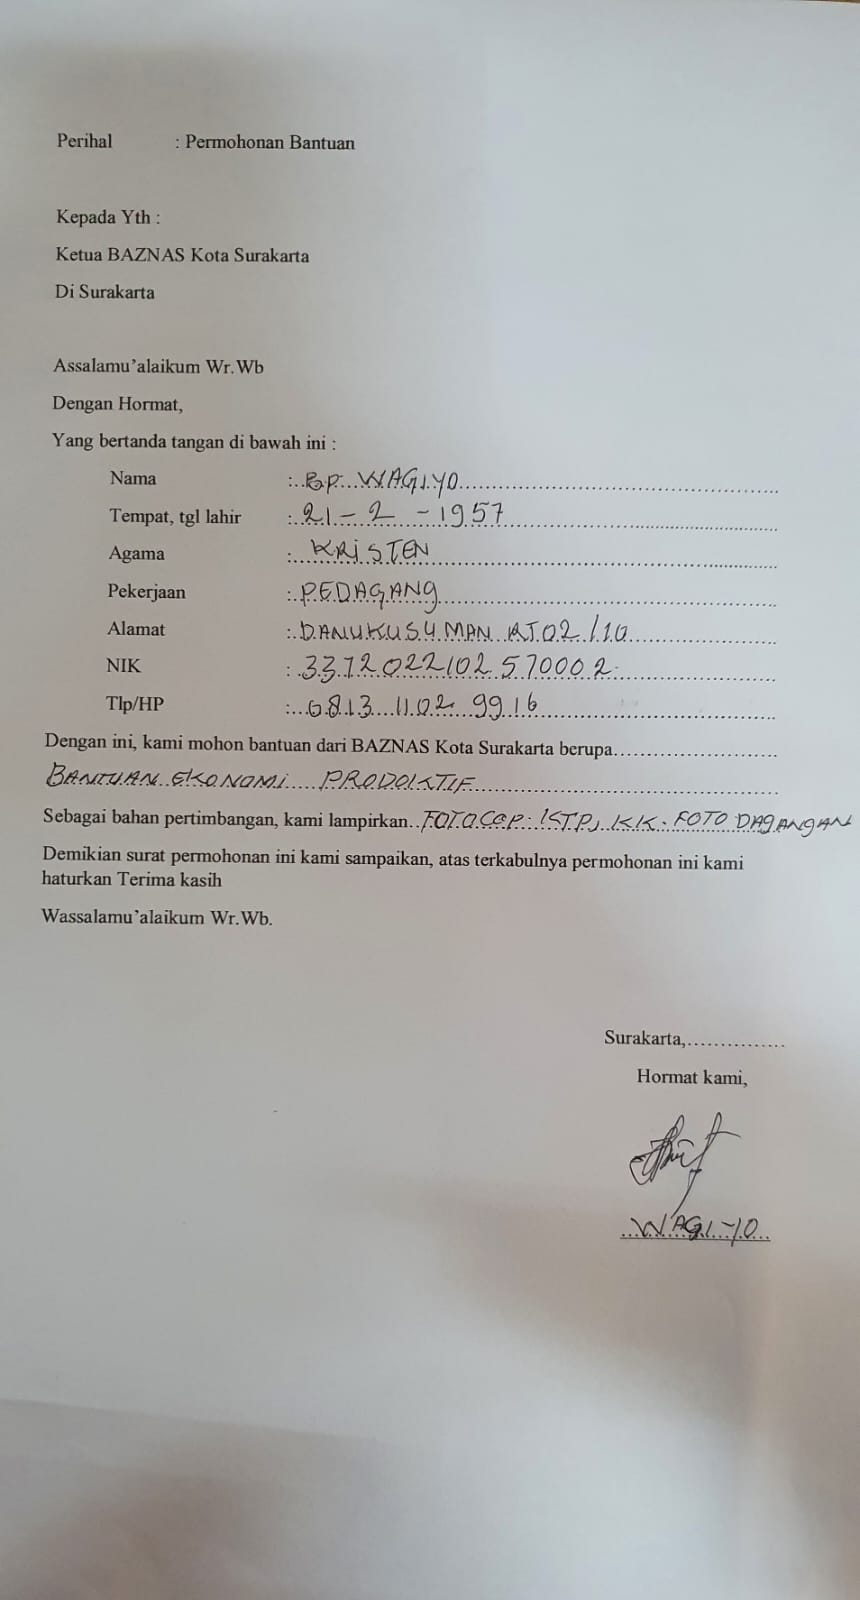 Perihal : Permohonan Bantuan
Kepada Yth :
Ketua BAZNAS Kota Surakarta
Di Surakarta
Assalamu'alaikum Wr.Wb
Dengan Hormat,
Yang bertanda tangan di bawah ini :
Nama : BP. WAGIYO
Tempat, tgl lahir : 21 - 2 - 1957
Agama : KRISTEN
Pekerjaan : PEDAGANG
Alamat : DANUKUSUMAN RT02/10
NIK : 3372022102570002
Tlp/HP : 0813 1102 9916
Dengan ini, kami mohon bantuan dari BAZNAS Kota Surakarta berupa
BANTUAN EKONOMI PRODOKTIF
Sebagai bahan pertimbangan, kami lampirkan FOTOCOP. KTP, KK. FOTO DAGANGAN
Demikian surat permohonan ini kami sampaikan, atas terkabulnya permohonan ini kami
haturkan Terima kasih
Wassalamu'alaikum Wr.Wb.
Surakarta,...............
Hormat kami,
WAGIYO